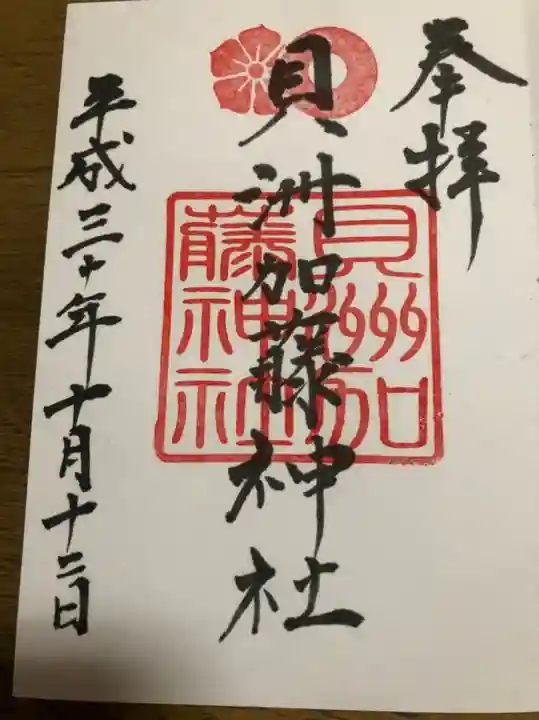 奉拝
貝洲加藤神社
貝洲加
藤神社
平成三十年十月十二日